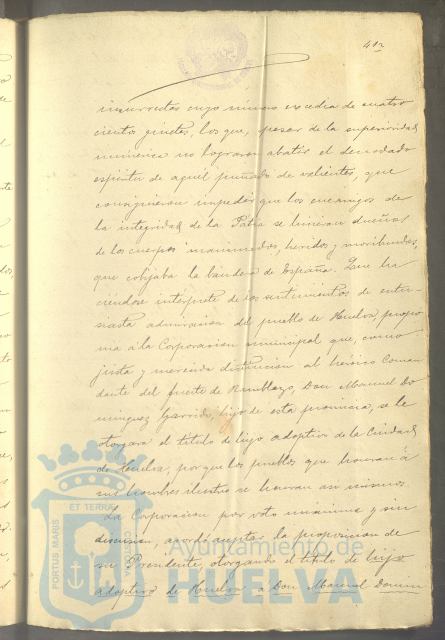 412
insurrectos cuyo número excedía de cuatro
cientos ginetes, los que, á pesar de la superioridad
numérica no lograron abatir el denodado
espíritu de aquel puñado de valientes, que
consiguieron impedir que los enemigos de
la integridad de la Patria se hicieran dueños
de los cuerpos inanimados, heridos y moribundos,
que cobijaba la bandera de España. Que ha
ciéndose intérprete de los sentimientos de entu-
siasta admiración del pueblo de Huelva, propo
nía á la Corporación municipal que, como
justa y merecida distinción al heróico Coman
dante del fuerte de Don Manuel Do
minguez Garrido, hijo de esta provincia, se le
otorgara el título de hijo adoptivo de la Ciudad
de Huelva, porque los pueblos que honran á
sus hombres ilustres se honran así mismos.
La Corporación por voto unánime y sin
discusión, acordó aceptar la proposición de
su Presidente, otorgando el título de hijo
adoptivo de Huelva a Don Manuel Domin
PORTUS MARIS
ET TERRAE
Ayuntamiento de
HUELVA